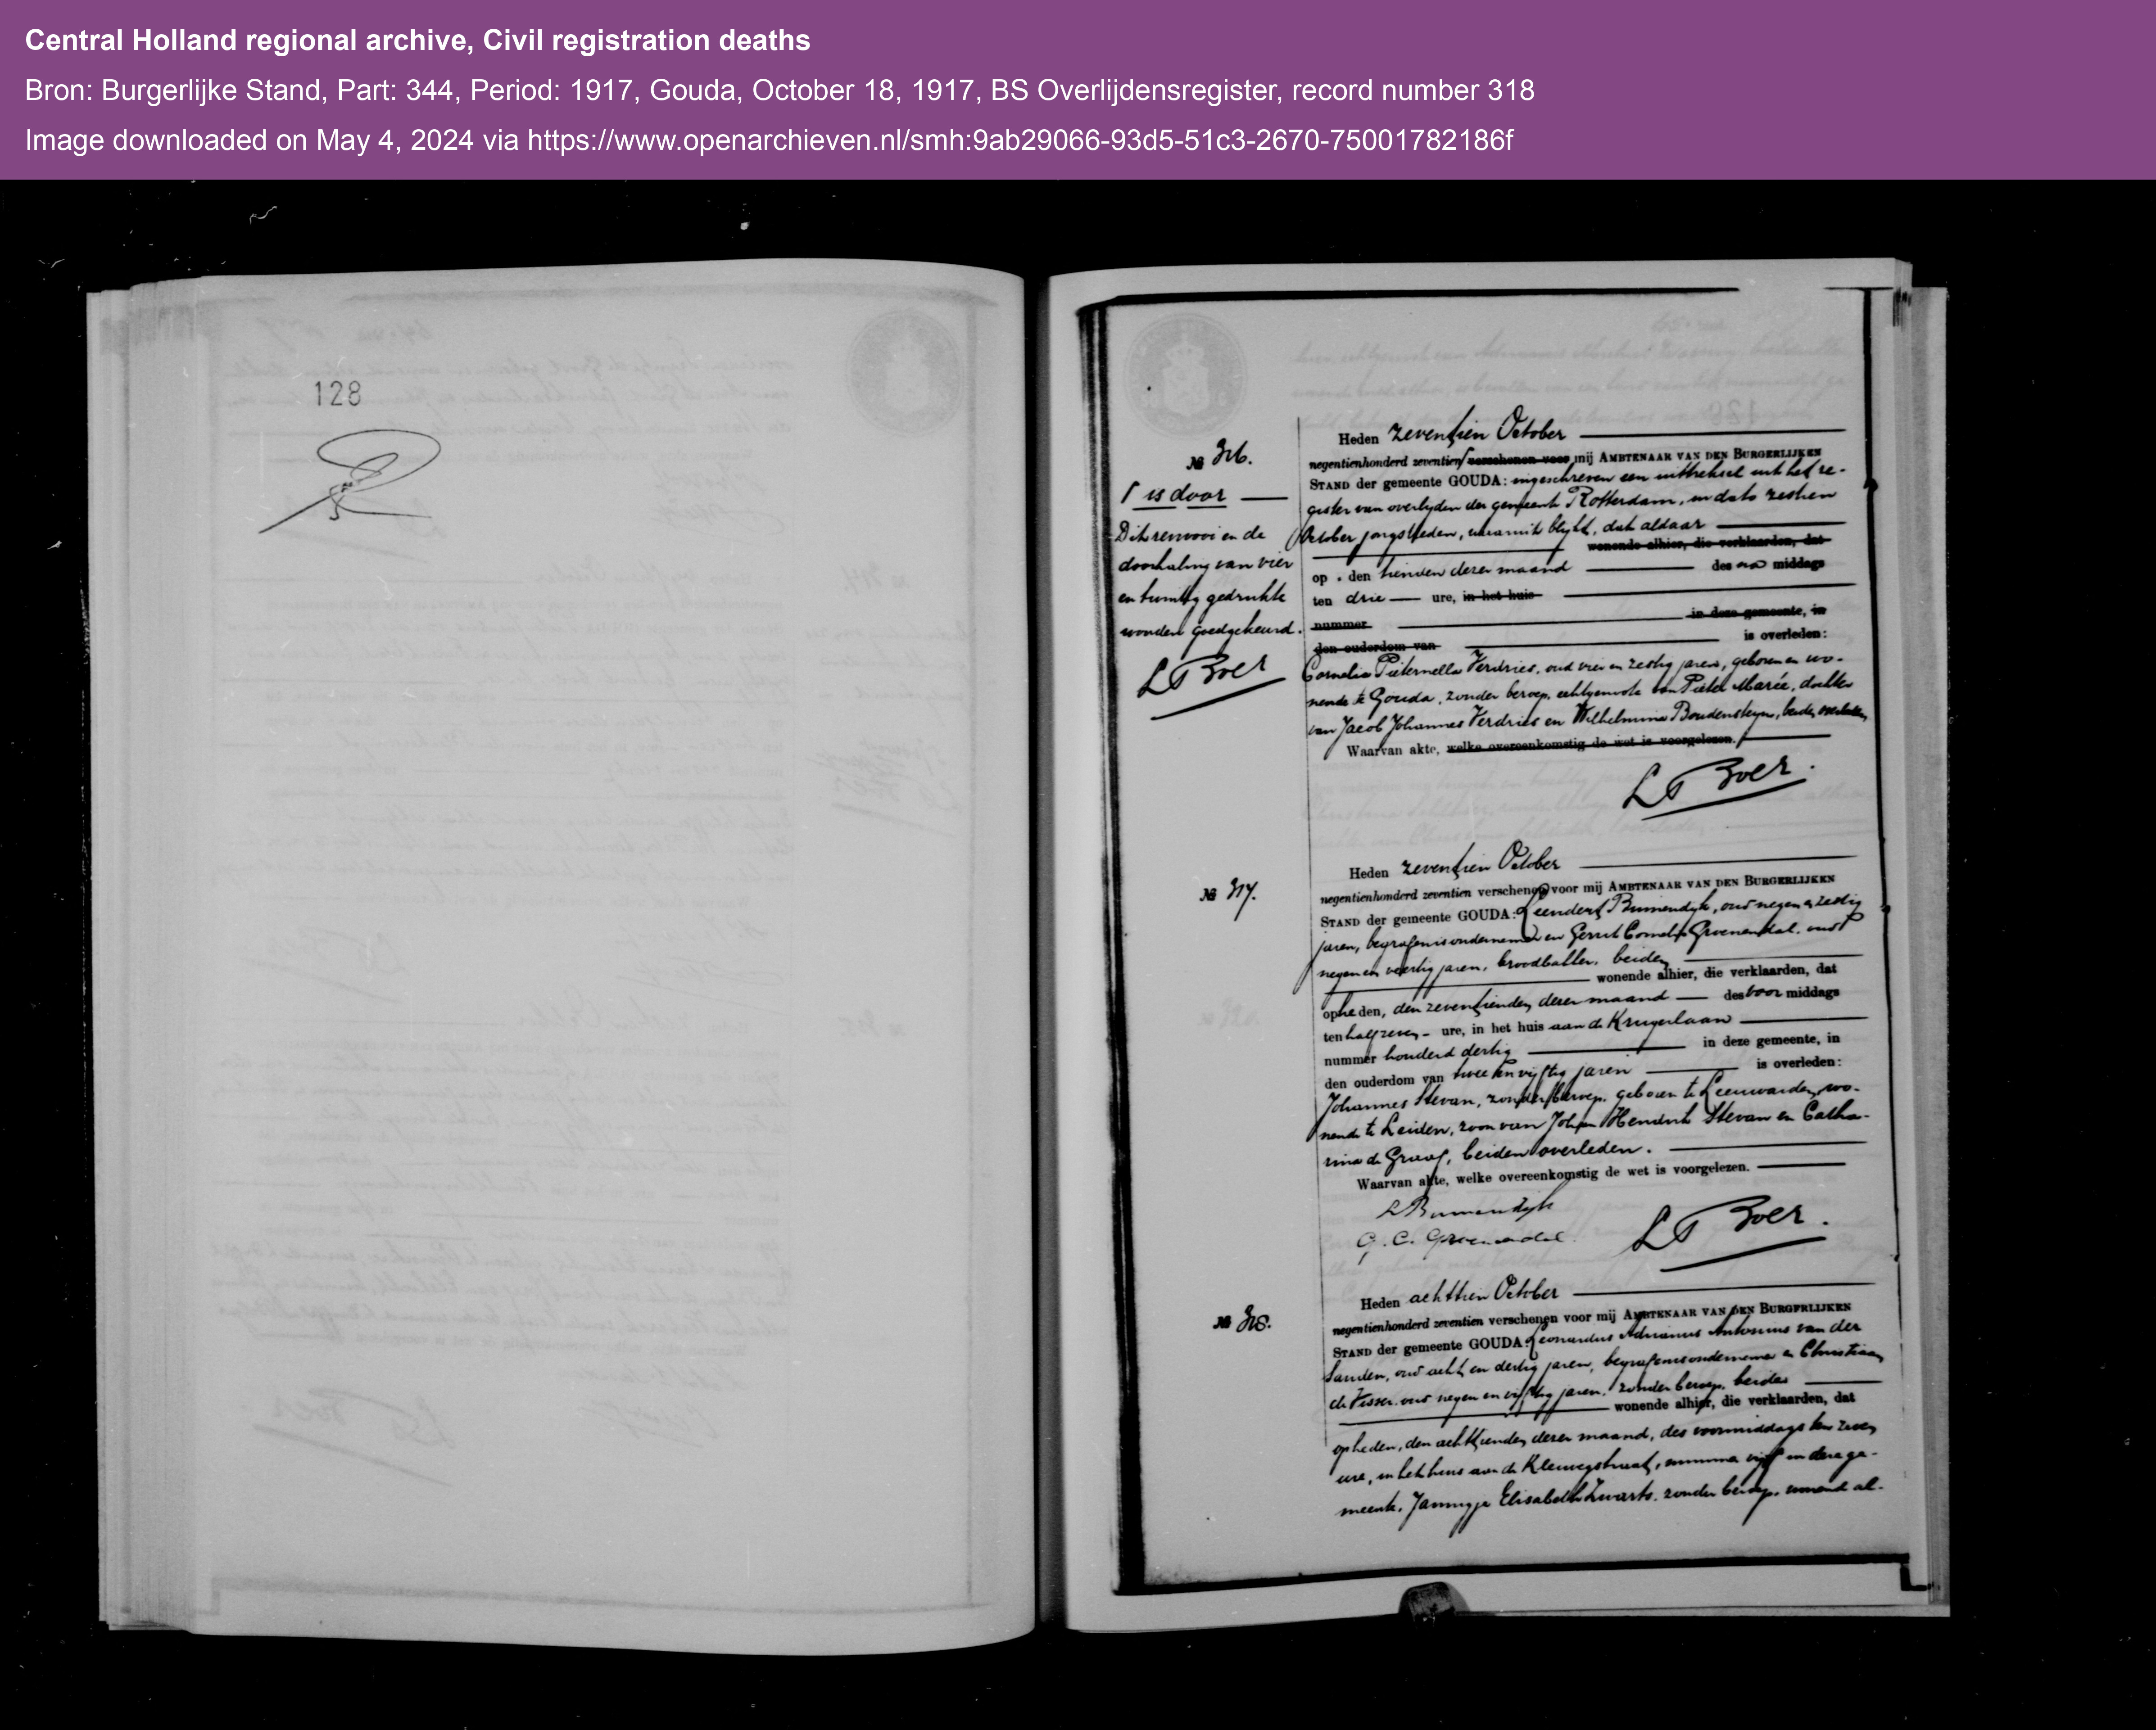 Central Holland regional archive, Civil registration deaths
Bron: Burgerlijke Stand, Part: 344, Period: 1917, Gouda, October 18, 1917, BS Overlijdensregister, record number 318
Image downloaded on May 4, 2024 via https://www.openarchieven.nl/smh:9ab29066-93d5-51c3-2670-75001782186f
128
№ 316.
Γ is door
Dit renvooi en de
doorhaling van vier
en twintig gedrukte
woorden goedgekeurd.
LG Boer
Heden zeventien October
negentienhonderd zeventien Γ verschenen voor mij AMBTENAAR VAN DEN BURGERLIJKEN
STAND der gemeente GOUDA: ingeschreven een uittreksel uit het re-
gister van overlijden der gemeente Rotterdam, in dato zestien
October jongstleden, waaruit blijkt, dat aldaar
wonende alhier, die verklaarden, dat
op den tienden dezer maand des na middags
ten drie ure, in het huis
nummer in deze gemeente, in
den ouderdom van is overleden:
Cornelia Pieternella Verdries, oud vier en zestig jaren, geboren en wo-
nende te Gouda, zonder beroep, echtgenoote van Pieter Marée, dochter
van Jacob Johannes Verdries en Wilhelmina Boudensteyn, beiden overleden,
Waarvan akte, welke overeenkomstig de wet is voorgelezen.
LG Boer.
№ 317.
Heden zeventien October
negentienhonderd zeventien verschenen voor mij AMBTENAAR VAN DEN BURGERLIJKEN
STAND der gemeente GOUDA: Leendert Binnendijk, oud negen en zestig
jaren, begrafenisondernemer en Gerrit Cornelis Groenendal, oud
negen en veertig jaren, broodbakker, beiden
wonende alhier, die verklaarden, dat
op heden, den zeventienden dezer maand des voor middags
ten half zeven ure, in het huis aan de Krugerlaan
nummer honderd dertig in deze gemeente, in
den ouderdom van twee en vijftig jaren is overleden:
Johannes Stevan, zonder beroep, geboren te Leeuwarden, wo-
nende te Leiden, zoon van Johan Hendrik Stevan en Catha-
rina de Graaf, beiden overleden.
Waarvan akte, welke overeenkomstig de wet is voorgelezen.
L Binnendijk
G. C. Groenendal.
LG Boer.
№ 318.
Heden achttien October
negentienhonderd zeventien verschenen voor mij AMBTENAAR VAN DEN BURGERLIJKEN
STAND der gemeente GOUDA: Leonardus Adrianus Antonius van der
Sanden, oud acht en dertig jaren, begrafenisondernemer en Christiaan
de Visser, oud negen en vijftig jaren, zonder beroep, beiden
wonende alhier, die verklaarden, dat
op heden, den achttienden dezer maand, des voormiddags ten zeven
ure, in het huis aan de Kleiwegstraat, nummer vijf in deze ge-
meente, Jannigje Elisabeth Zwarts, zonder beroep, wonend al-